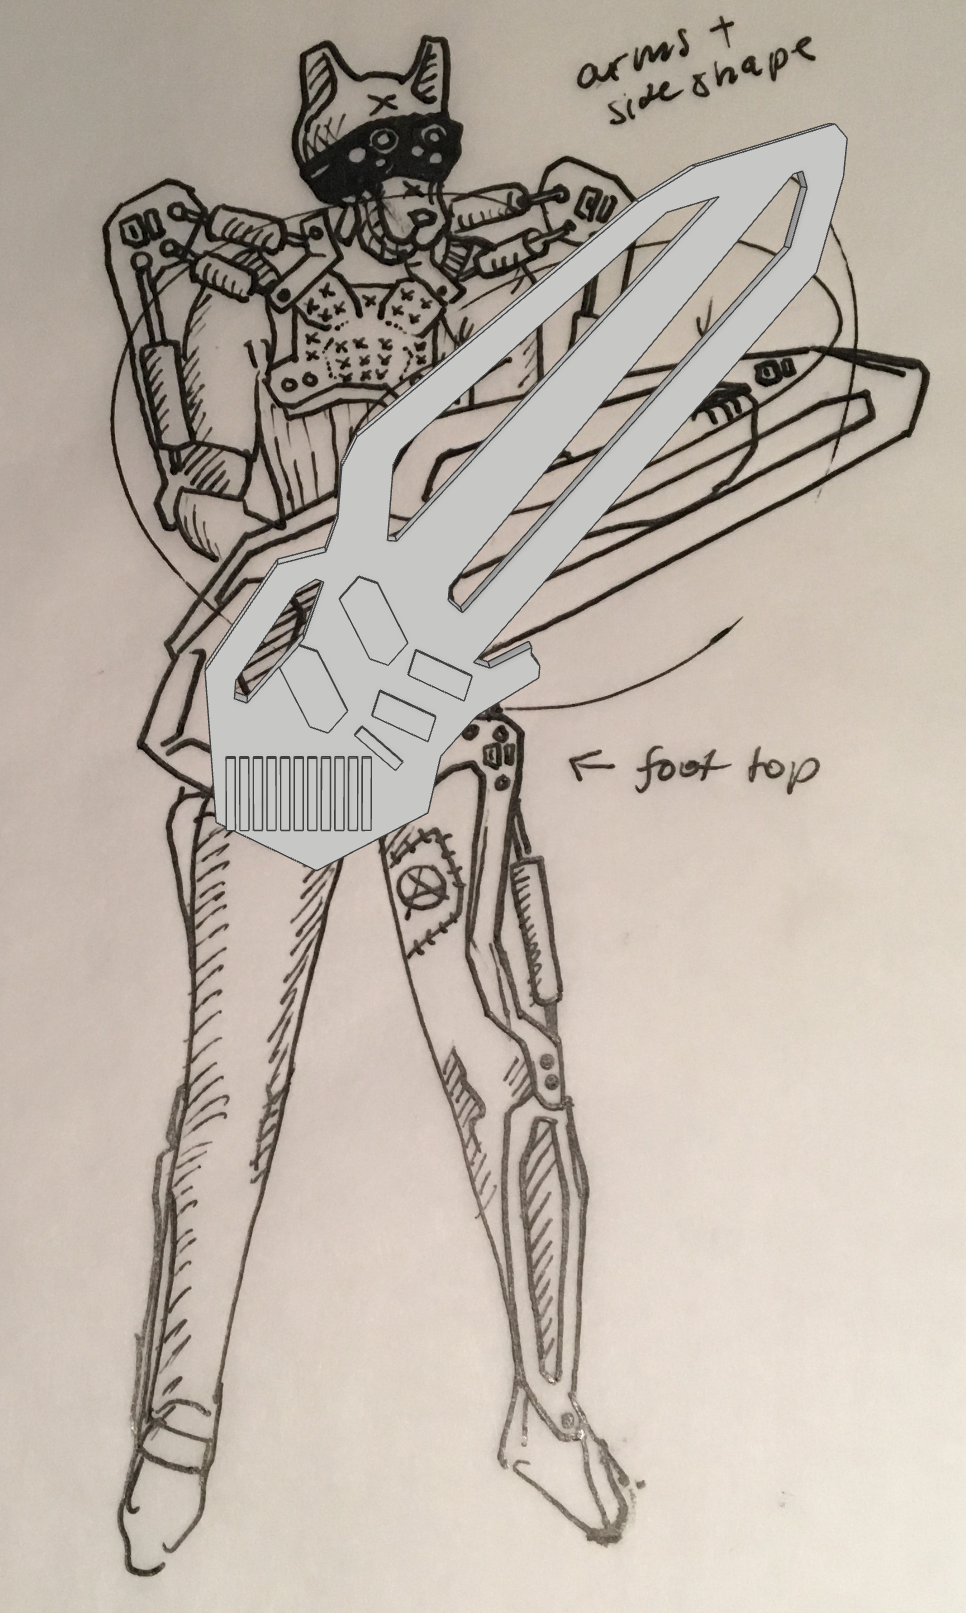 arms +
side shape
← foot top